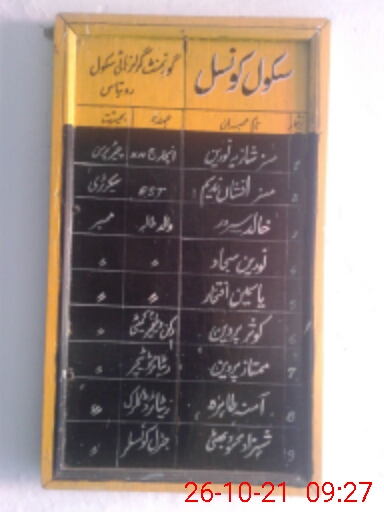 سکول کونسل
گورنمنٹ گرلز ہائی سکول
روہتاس
نمبر شمار نام ممبران عہدہ بحیثیت
1 مسز شازیہ نورین انچارج چیئرپرسن
2 مسز افشاں ندیم EST سیکرٹری
3 خالد سرور والد طالبہ ممبر
4 نورین سجاد 〃 〃
5 یاسمین افتخار 〃 〃
6 کوثر پروین 〃
7 ممتاز پروین ریٹائرڈ ٹیچر 〃
8 آمنہ طاہرہ ریٹائرڈ کلرک 〃
9 شہزاد بھٹی جنرل کونسلر 〃
26-10-21 09:27